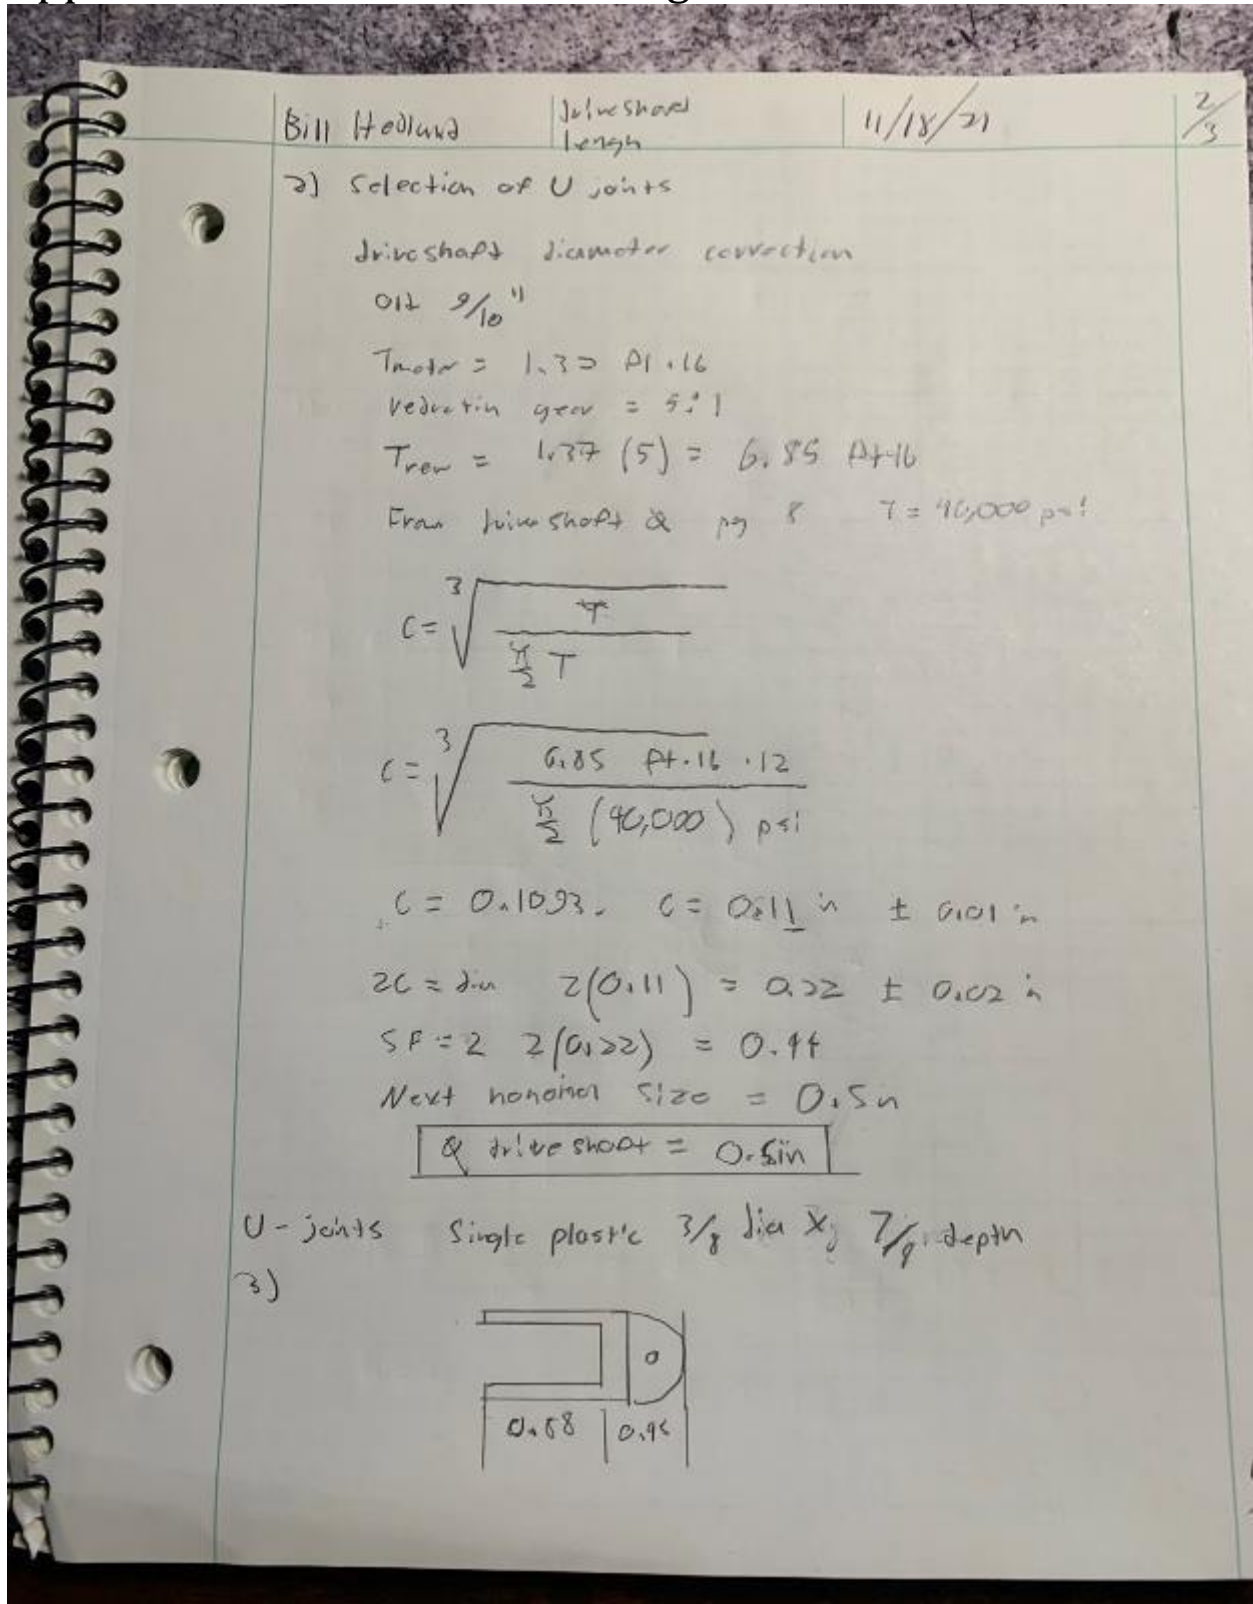 Bill Hedlund
driveshaft length
11/18/21
2/3
2) Selection of U joints
driveshaft diamotor correction
old 9/10"
Tmotor = 1.37 ft·lb
reduction gear = 5:1
Tnew = 1.37 (5) = 6.85 ft·lb
From driveshaft Ø pg 8 T = 40,000 psi
C = ∛(T / (π/2 T))
C = ∛(6.85 ft·lb · 12 / (π/2 (40,000) psi))
C = 0.1093. C = 0.11 in ± 0.01 in
2C = dia 2(0.11) = 0.22 ± 0.02 in
SF = 2 2(0.22) = 0.44
Next nominal size = 0.5in
Ø driveshaft = 0.5in
U-joints Single plastic 3/8 dia x 7/8 depth
3)